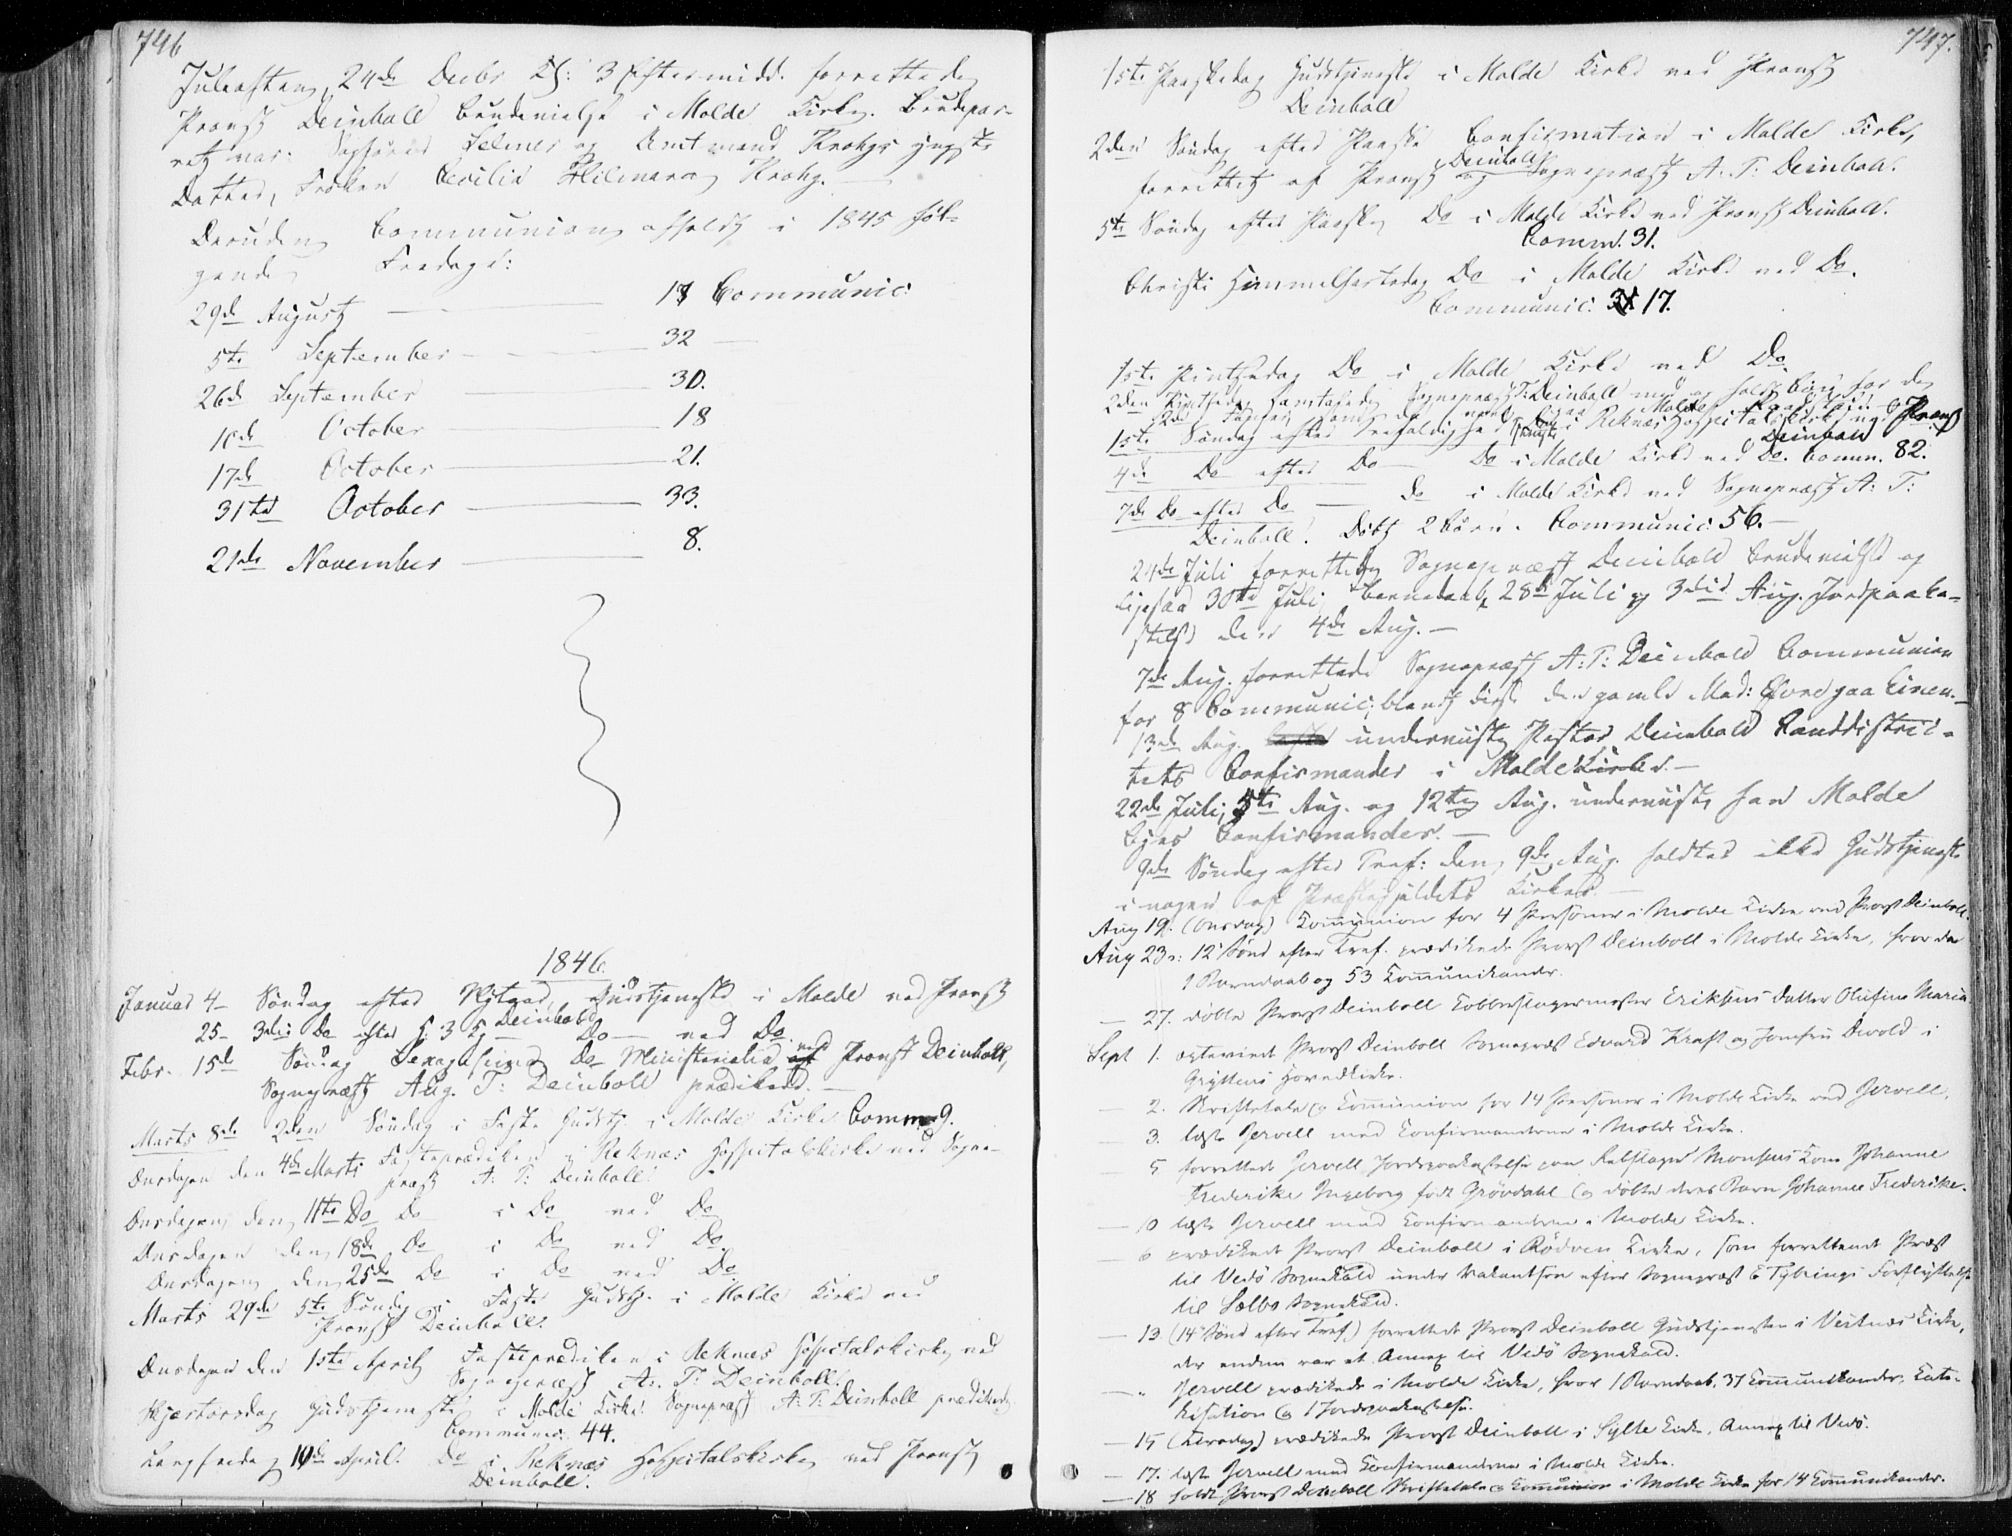 746
Juleaften, 24de Decbr Kl: 3 Eftermidd. forrettede
Provst Deinboll Brudevielse i Molde Kirke. Brudepar-
ret var: Sagfører Selmer og Amtmand Krohgs yngste
Datter, Frøken Cecilia Hilmara Krohg. —
Desuden Communion afholdt i 1845 føl-
gende Fredage:
29de August — 17 Communic:
5te September — 32 —
26de September — 30.
10de October — 18
17de October — 21.
31te October — 33.
21de November — 8.
1846.
Januar 4 – Søndag efter Nytaar, Gudstjeneste i Molde ved Provst
Deinboll
25 – 3die Do efter H: 3 K: — Do — ved Do.
Febr. 15de Søndag Sexagesima Do Ministerialia ved Provst Deinboll,
Sognepræst Aug. T: Deinboll prædikede. —
Marts 8de 2den Søndag i Faste Gudstj. i Molde Kirke Comm 9.
Onsdagen den 4de Marts Fasteprædiken i Reknæs Hospitalskirke ved Sogne-
præst A: T: Deinboll.
Onsdagen den 11te Do Do i Do ved Do
Onsdagen den 18de Do i Do ved Do.
Onsdagen den 25de Do i Do ved Do
Marts 29de 5te Søndag i Faste Gudstj. i Molde Kirke ved
Provst Deinboll.
Onsdagen den 1ste April Fasteprædiken i Reknæs Hospitalskirke ved
Sognepræst A: T: Deinboll.
Skjærtorsdag Gudstjeneste i Molde Kirke. Sognepræst A: T: Deinboll prædikede
Communic: 44.
Langfredag 10de April. Do i Reknæs Hospitalskirke ved Provst
Deinboll.
747.
1ste Paaskedag Gudstjeneste i Molde Kirke ved Provst
Deinboll
2den Søndag efter Paaske Confirmation i Molde Kirke,
forrettet af Provst Deinboll og Sognepræst A: T: Deinboll.
5te Søndag efter Paaske Do i Molde Kirke ved Provst Deinboll.
Comm. 31.
Christi Himmelfartsdag Do i Molde Kirke ved Do.
Communic: 17.
1ste Pintsedag Do i Molde Kirke ved Do.
2den Pintsedag Sognepræst T: Deinboll
1ste Søndag efter Trefoldighed i Reknæs Hospitalskirke ved Provst
Deinboll
4de Do efter Do — Do i Molde Kirke ved Do. Comm. 82.
7de Do efter Do — Do i Molde Kirke ved Sognepræst A: T:
Deinboll. Døbt 2 Børn. Communic: 56. —
24de Juli forrettede Sognepræst Deinboll Brudevielse og
ligesaa 30te Juli, Barnedaab 28de Juli og 3die Aug. Jordpaaka-
stelse den 4de Aug. —
7de Aug. forrettede Sognepræst A: T: Deinboll Communion
for 8 Communic: blandt disse den gamle Mad: Øvre paa Einen. —
13de Aug. underviiste Pastor Deinboll Landdistric-
tets Confirmander i Molde Kirke. —
22de Juli, 5te Aug. og 12te Aug. underviiste han Molde
Byes Confirmander. —
9de Søndag efter Tref: den 9de Aug. holdtes ikke Gudstjeneste
i nogen af Præstegjeldets Kirker. —
Aug 19. (Onsdag) Communion for 4 Personer i Molde Kirke ved Provst Deinboll.
Aug 23.: 12 Sønd efter Tref. prædikede Provst Deinboll i Molde Kirke, hvor der
1 Barnedaab og 53 Communikander.
— 27. døbte Provst Deinboll Kobberslagermester Eriksens Datter Olufine Maria
Sept 1. ægteviede Provst Deinboll Sognepræst Edvard Kraft og Jomfru Devold i
Gryttens Hovedkirke.
— 2. Skriftetale og Communion for 14 Personer i Molde Kirke ved Jervell.
— 3. læste Jervell med Confirmanderne i Molde Kirke.
5 forrettede Jervell Jordpaakastelse paa Rebslager Monsens Kone Johanne
Frederikke Ingeborg født Grøvdahl og døbte deres Barn Johanne Frederikke.
— 10 læste Jervell med Confirmanderne i Molde Kirke.
— 6 prædikede Provst Deinboll i Rødven Kirke, som forrettende Præst
til Vedø Sognekald under Vakantsen efter Sognepræst E Tybrings Forflyttelse
til Sælbo Sognekald.
— 13 (14 Sønd efter Tref.) forrettede Provst Deinboll Gudstjenesten i Vestnæs Kirke,
der endnu var et Annex til Vedø Sognekald.
— " Jervell prædikede i Molde Kirke, hvor 1 Barnedaab, 37 Communikander, Kate-
kisation og 1 Jordpaakastelse.
— 15 (Tirsdag) prædikede Provst Deinboll i Sylte Kirke, Annex til Vedø.
— 17. læste Jervell med Confirmanderne i Molde Kirke.
— 18 holdt Provst Deinboll Skriftetale og Communion i Molde Kirke for 14 Communikander.